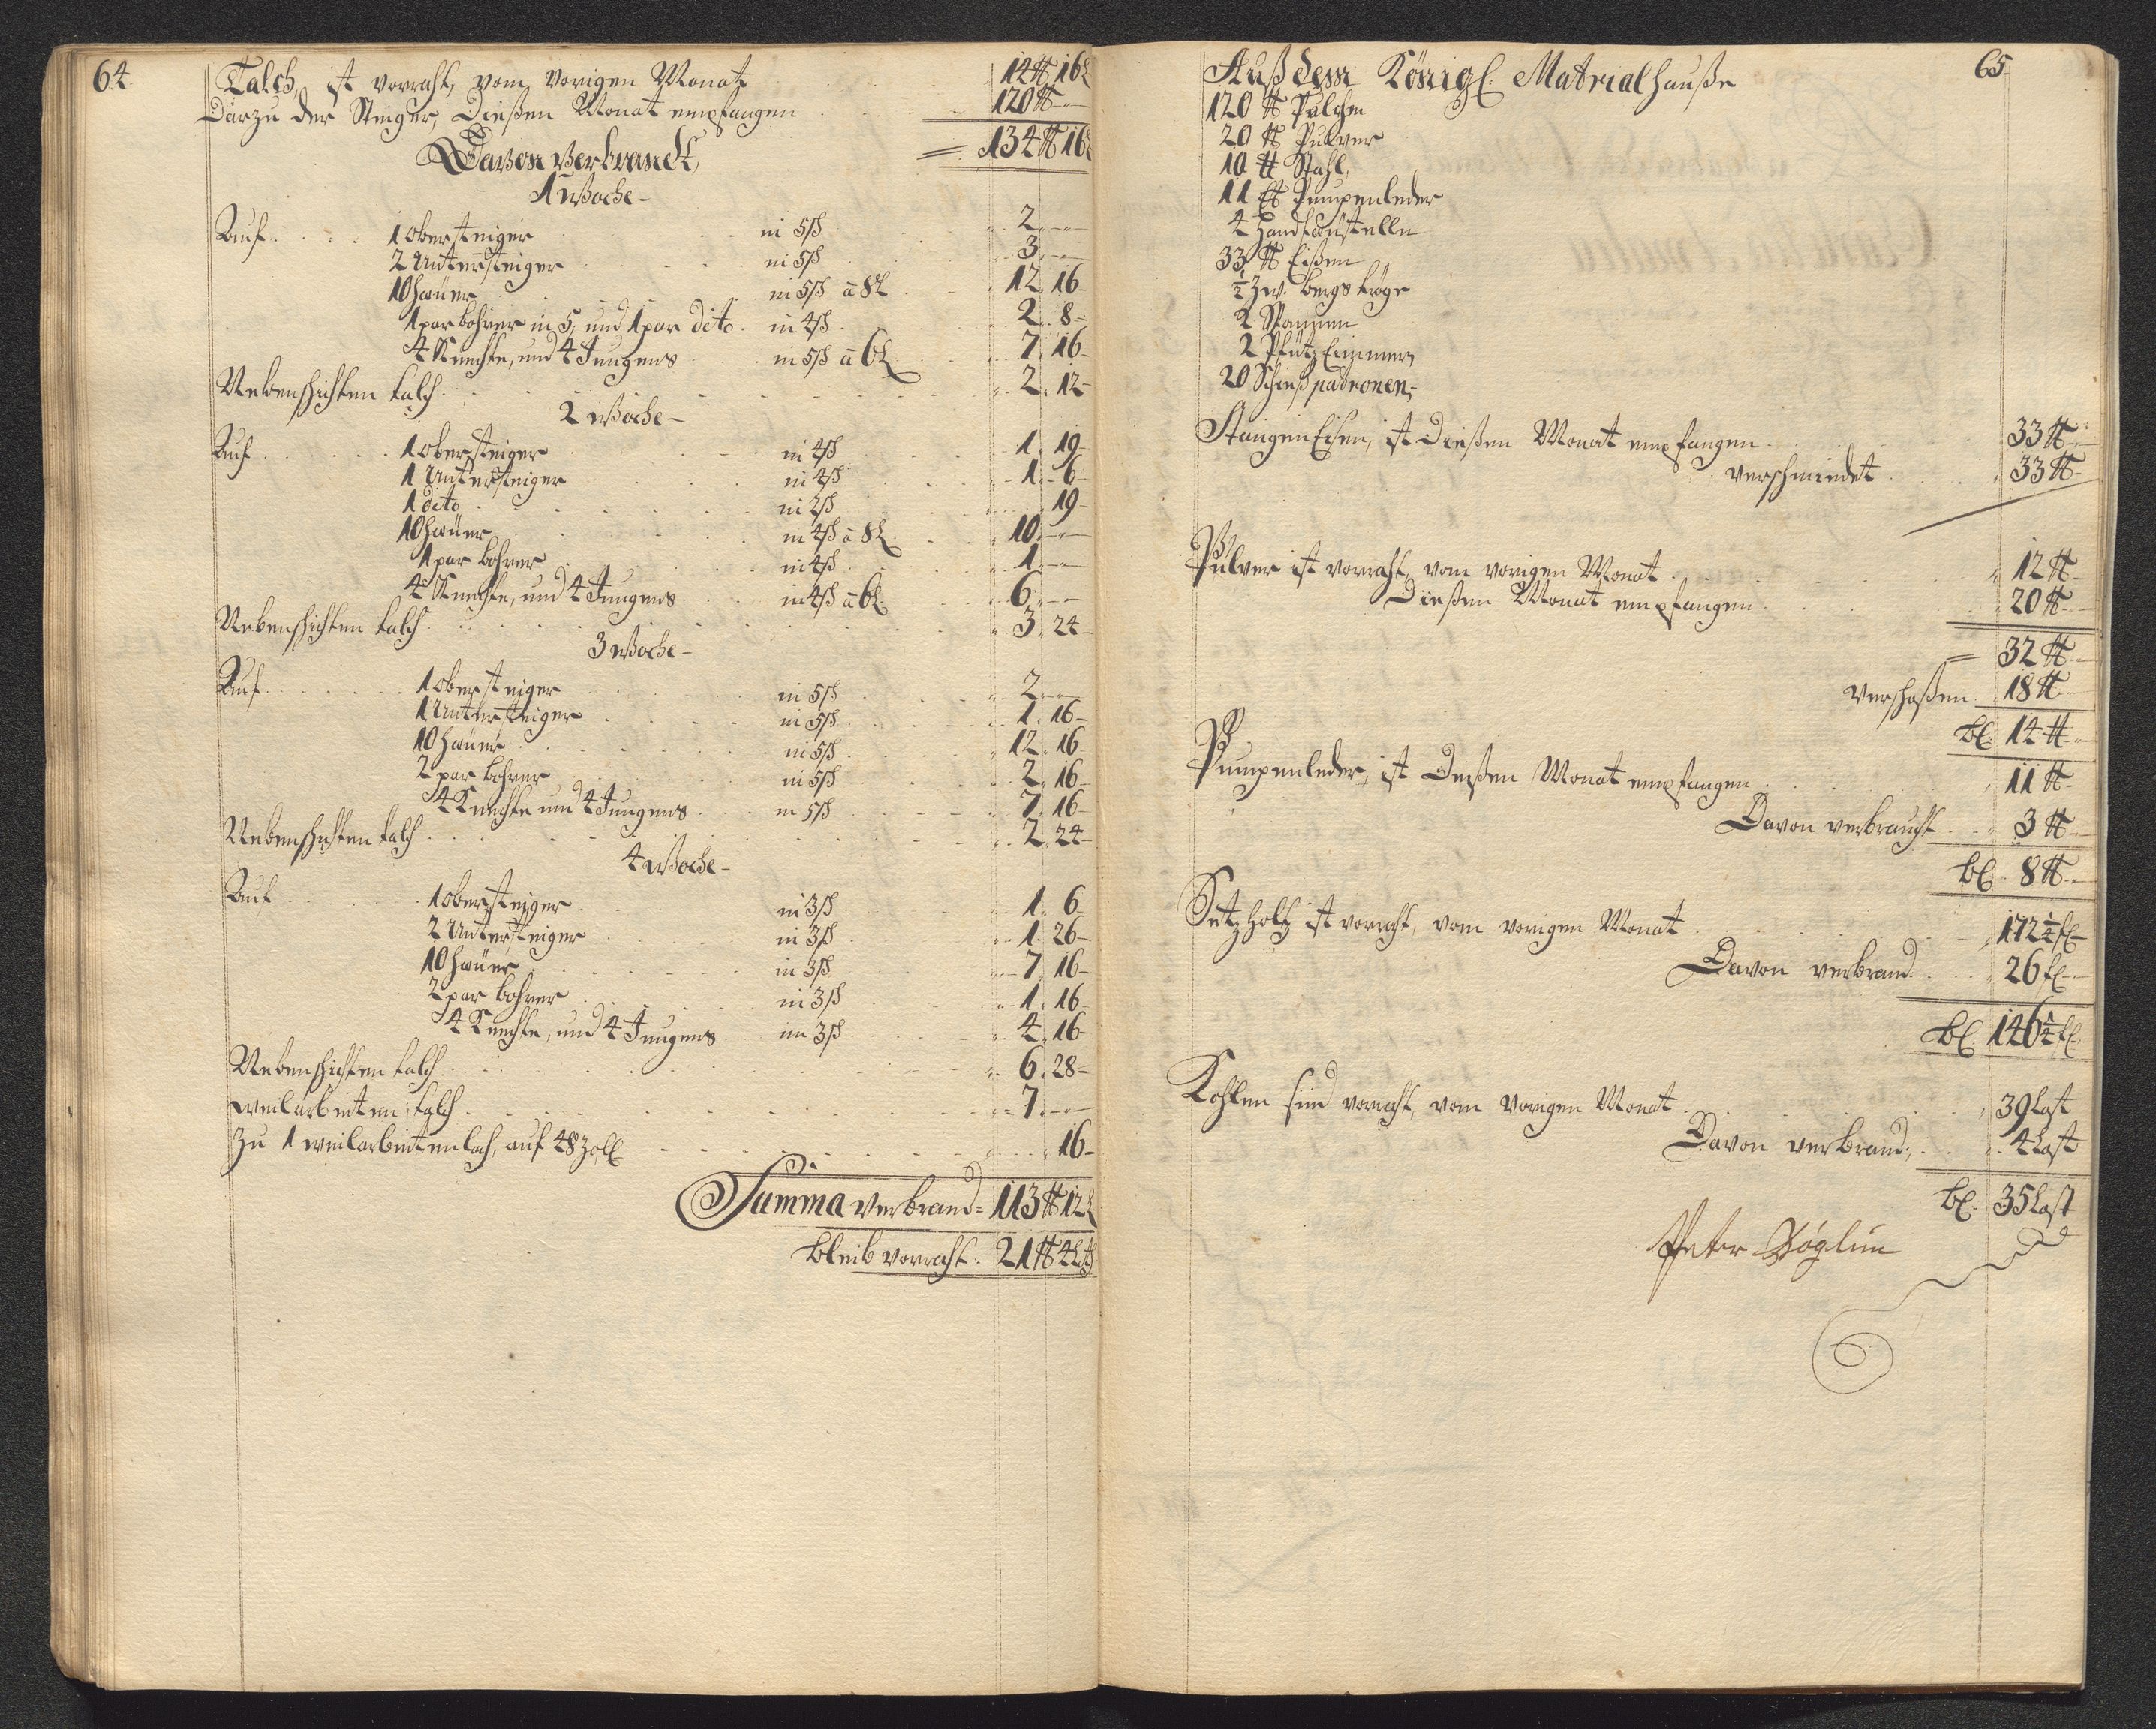 64
Talch, ist vorraht, vom vorigen Monat 14 ℔ 16 L
Darzu der Steiger, Dießen Monat empfangen 120 ℔
= 134 ℔ 16 L
Davon Verbrandt,
1 Woche -
Auf 1 obersteiger in 5 ß 2
2 Untersteiger in 5 ß 3
10 hauer in 5 ß a 8 L 12 16
1 par bohrer in 5, und 1 par dito in 4 ß 2 8
4 Knechte, und 4 Jungens in 5 ß a 6 L 7 16
Nebenschichten talch 2 12
2 Woche -
Auf 1 obersteiger in 4 ß 1 19
1 Untersteiger in 4 ß 1 6
1 dito in 2 ß 19
10 hauer in 4 ß a 8 L 10
1 par bohrer in 4 ß 1
4 Knechte, und 4 Jungens in 4 ß a 6 L 6
Nebenschichten talch 3 24
3 Woche -
Auf 1 obersteiger in 5 ß 2
1 Untersteiger in 5 ß 1 16
10 hauer in 5 ß 12 16
2 par bohrer in 5 ß 2 16
4 Knechte und 4 Jungens in 5 ß 7 16
Nebenschichten talch 2 24
4 Woche -
Auf 1 obersteiger in 3 ß 1 6
2 Untersteiger in 3 ß 1 26
10 hauer in 3 ß 7 16
2 par bohrer in 3 ß 1 16
4 Knechte, und 4 Jungens in 3 ß 4 16
Nebenschichten talch 6 28
weilarbeiten talch 7
Zu 1 weilarbeiten loch, auf 48 Zoll 16
Summa verbrand = 113 ℔ 12 L
bleib vorraht 21 ℔ 4 Loth
65
Auß dem Königl. Matrialhauße
120 ℔ Talchen
20 ℔ Pulver
10 ℔ Stahl,
11 ℔ Pumpenleder
4 Handfäustelle
33 ℔ Eißen
½ Zw. bergströge
2 Spannen
2 Pfütz Eimmer,
20 Schießpadronen,
Stangen Eisen, ist Dießen Monat empfangen 33 ℔
verschmiedet 33 ℔
Pulver ist vorraht, vom vorigen Monat 12 ℔
Dießen Monat empfangen 20 ℔
= 32 ℔
Verschoßen 18 ℔
bl. 14 ℔
Pumpenleder, ist Dießen Monat empfangen 11 ℔
Davon verbraucht 3 ℔
bl. 8 ℔
Setzholtz ist vorraht, vom vorigen Monat 172 ¼ fl
Davon verbrand 26 fl
bl. 146 ¼ fl
Kohlen sind vorraht, vom vorigen Monat 39 Last
Davon verbrand, 4 Last
bl. 35 Last
Peter